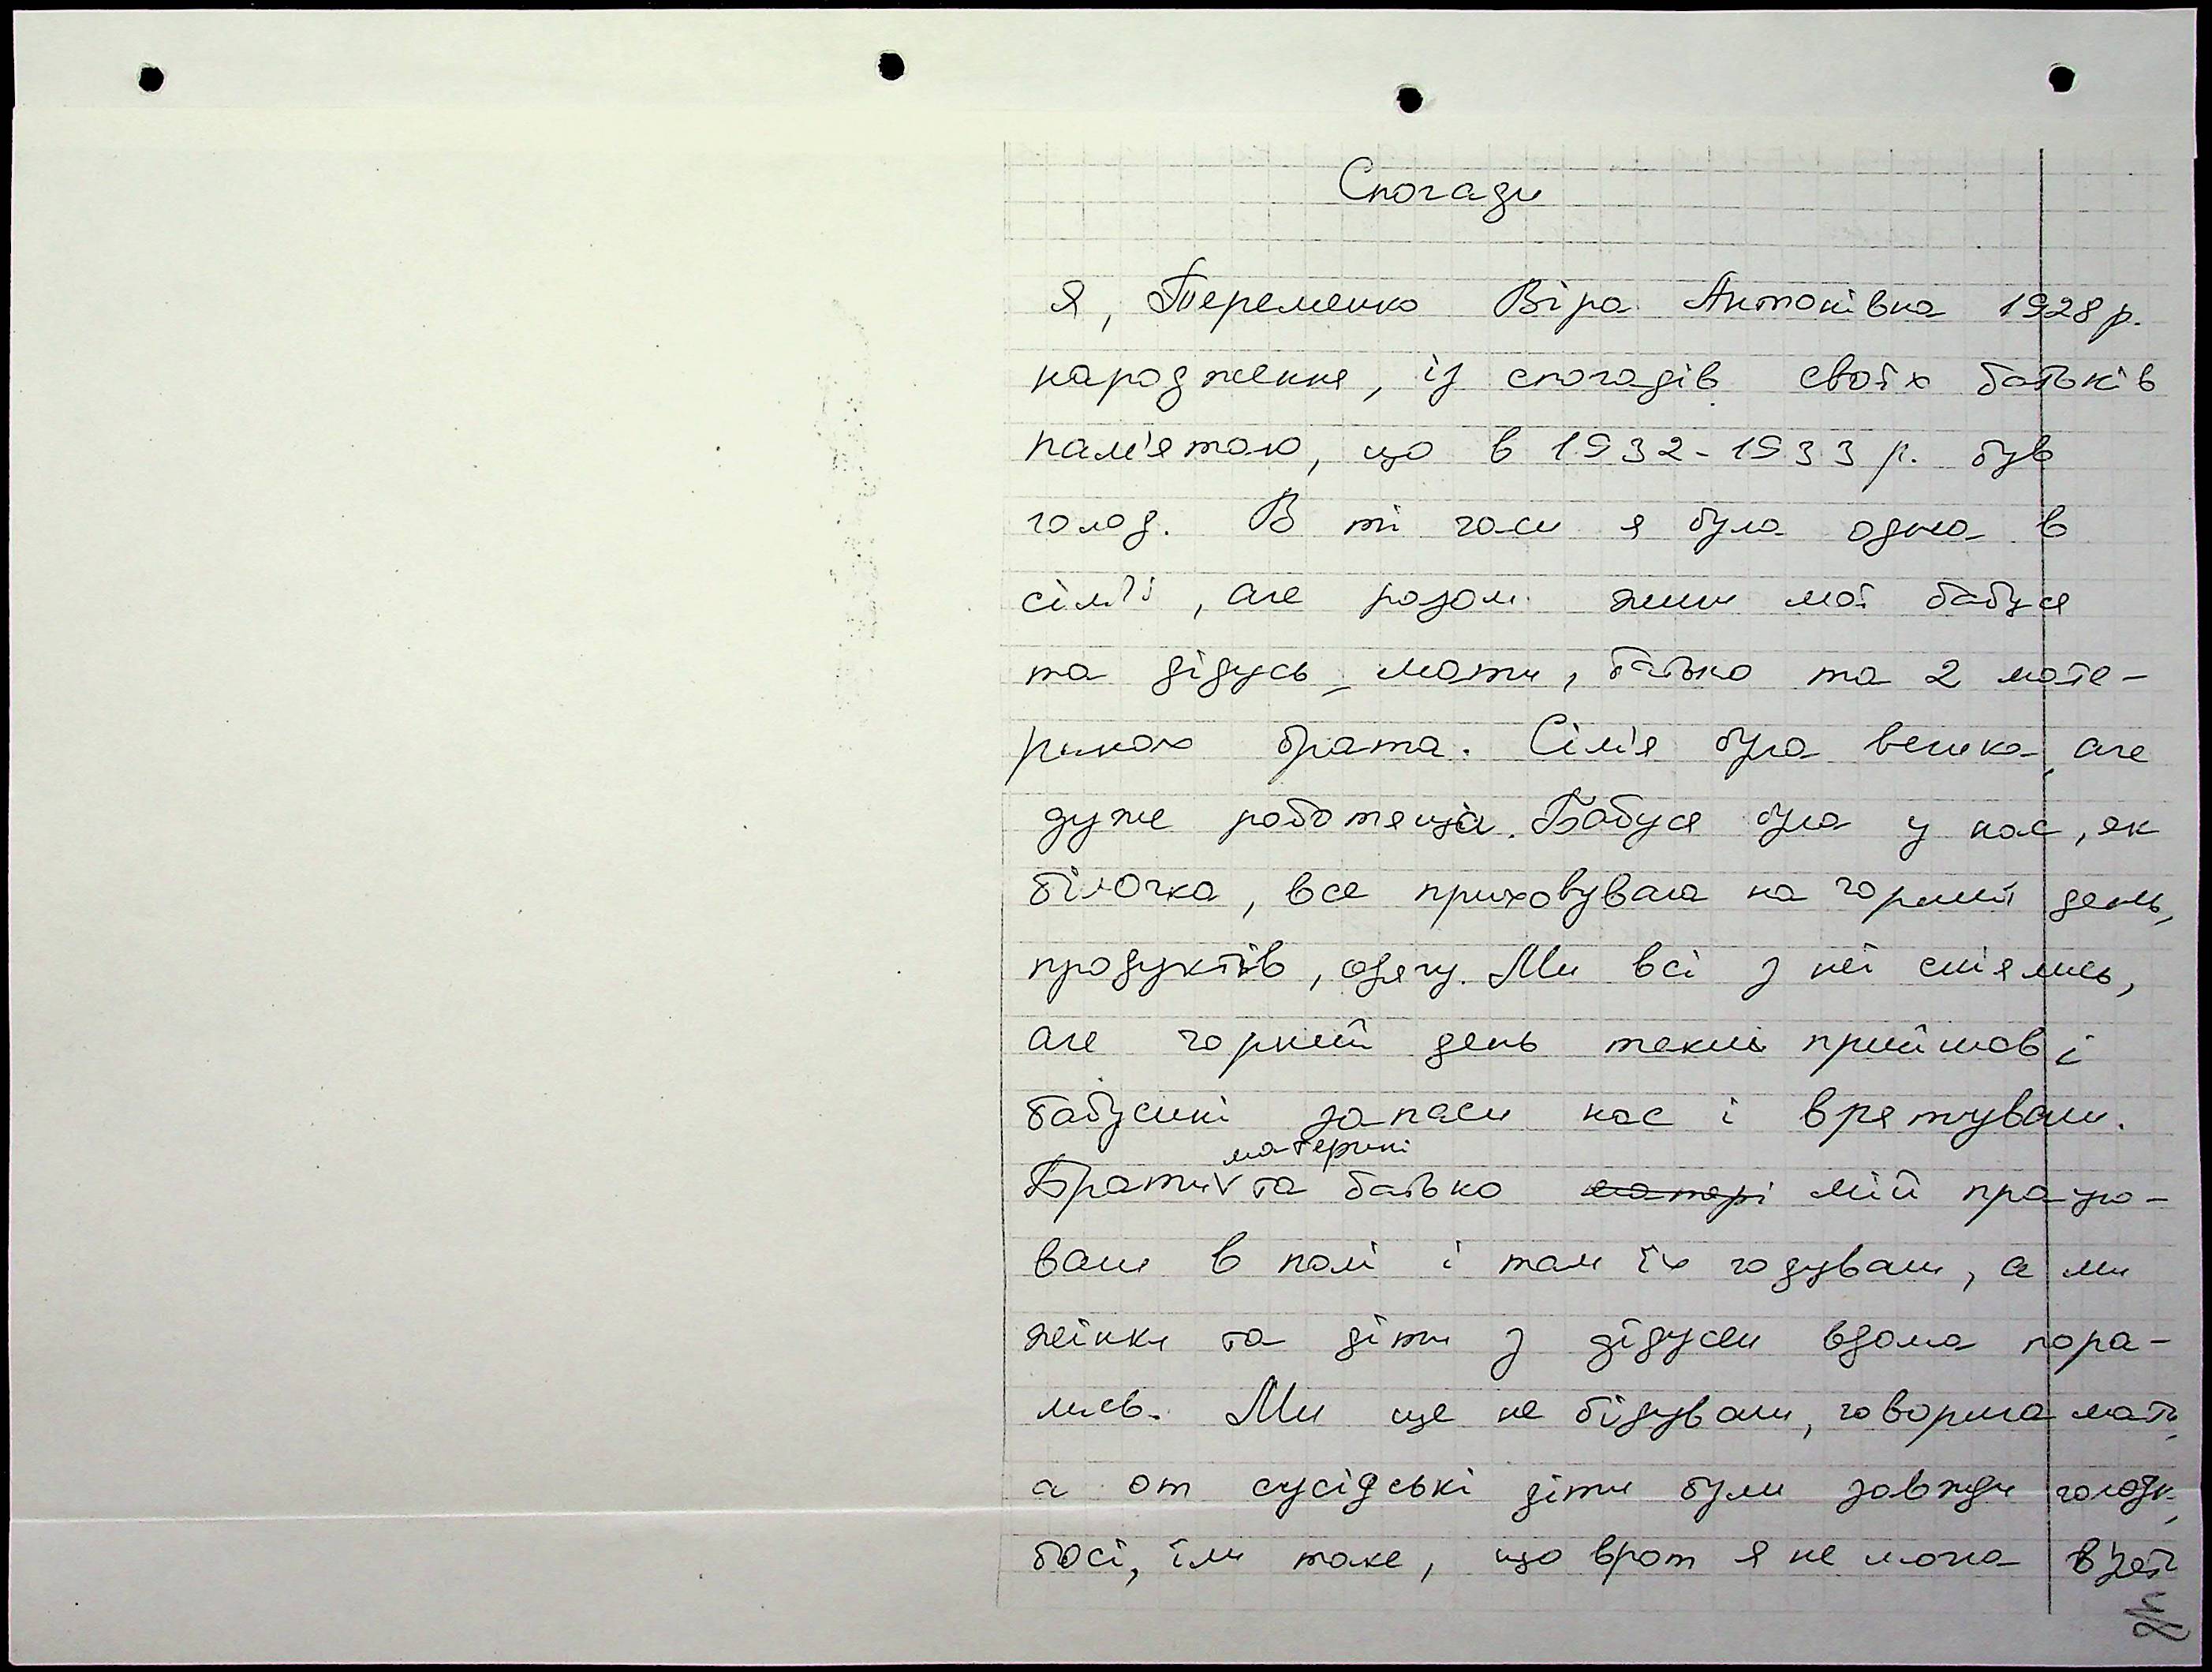 Спогади
Я, Теременко Віра Антонівна 1928 р.
народження, із спогадів своїх батьків
пам'ятаю, що в 1932-1933 р. був
голод. В ті часи я була одна в
сім'ї, але разом жили мої бабуся
та дідусь, мати, батько та 2 мате-
риних брата. Сім'я була велика, але
дуже роботяща. Бабуся була у нас, як
білочка, все приховувала на чорний день,
продуктів, одягу. Ми всі з неї сміялись,
але чорний день таки прийшов і
бабусині запаси нас і врятували.
материні
Брати та батько матері мій працю-
вали в полі і там їх годували, а ми
жінки та діти з дідусем вдома пора-
лись. Ми ще не бідували, говорила мати,
а от сусідські діти були завжди голодн,
босі, їли таке, що врот я не мона взят